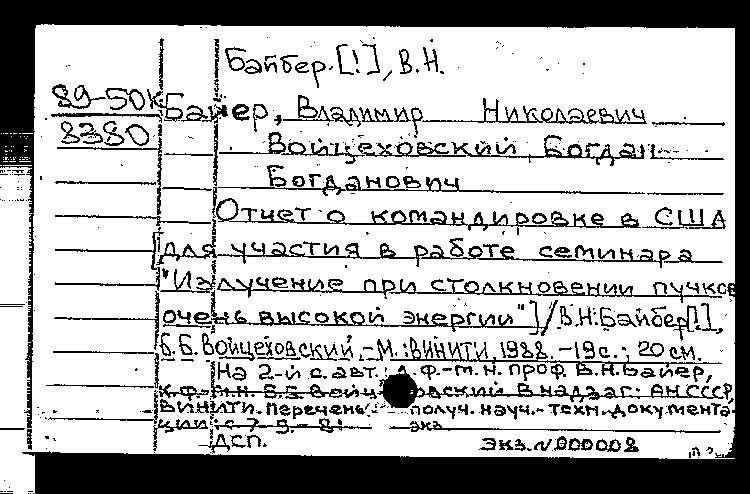 Байбер [!], В.Н.
89-50к Байер, Владимир Николаевич
8380 Войцеховский, Богдан
Богданович
Отчет о командировке в США
[для участия в работе семинара
"Излучение при столкновении пучков
очень высокой энергии"] / В.Н. Байбер[!],
Б.Б. Войцеховский. - М.: ВИНИТИ, 1988. - 19 с.; 20 см.
На 2-й с. авт.: д.ф.-м.н. проф. В.Н. Байер,
к.ф.-м.н. Б.Б. Войцеховский В надзаг.: АН СССР,
ВИНИТИ. Перечень получ. науч.-техн. документа-
ции: с 7-9. - 81 экз
ДСП. Экз. N 000008